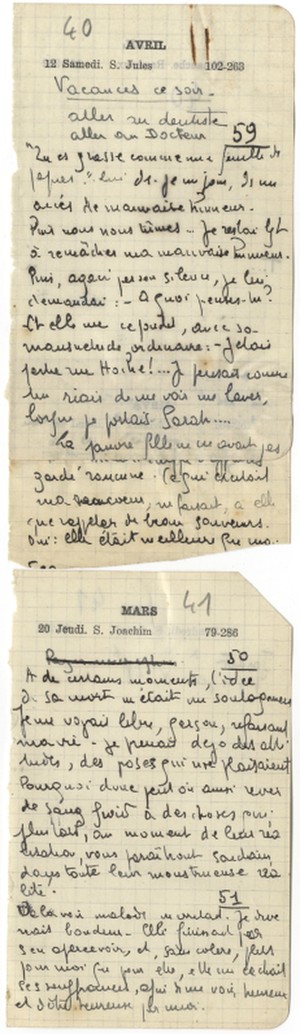 40
AVRIL
12 Samedi. S. Jules 102-263
Vacances ce soir.
aller au dentiste
aller au Docteur 59
"Tu es grasse comme une feuille de
papier." lui dis-je un jour, ds un
accès de mauvaise humeur.
Puis nous nous tûmes... Je restai là
à remâcher ma mauvaise humeur.
Puis, agacé par son silence, je lui
demandai : - A quoi penses-tu?
Et elle me répondit, avec sa
mansuétude ordinaire : - J'étais
rue Hoche!... Je pensais comme
tu riais de me voir me laver,
lorsque je portais Sarah....
La pauvre fille ne m'avait pas
gardé rancune. Ce qui excitait
ma rancoeur, ne faisait, à elle
que rappeler de beaux souvenirs.
Oui : elle était meilleure que moi.
41
MARS
20 Jeudi. S. Joachim 79-286
50
A de certains moments, l'idée
de sa mort m'était un soulagement
Je me voyais libre, garçon, refaisant
ma vie. Je prenais déjà des atti
tudes, des poses qui me plaisaient
Pourquoi donc peut on ainsi rêver
de sang froid à des choses qui,
plus tard, au moment de leur réa
lisation, vous paraîtront soudain,
dans toute leur monstrueuse réa
lité.
51
De la voir malade m'irritait. Je deve
nais boudeur. Elle finissait par
s'en apercevoir, et, sans colère, plus
pour moi que pour elle, elle me cachait
ses souffrances, afin de me voir heureux
et d'être heureuse par moi.